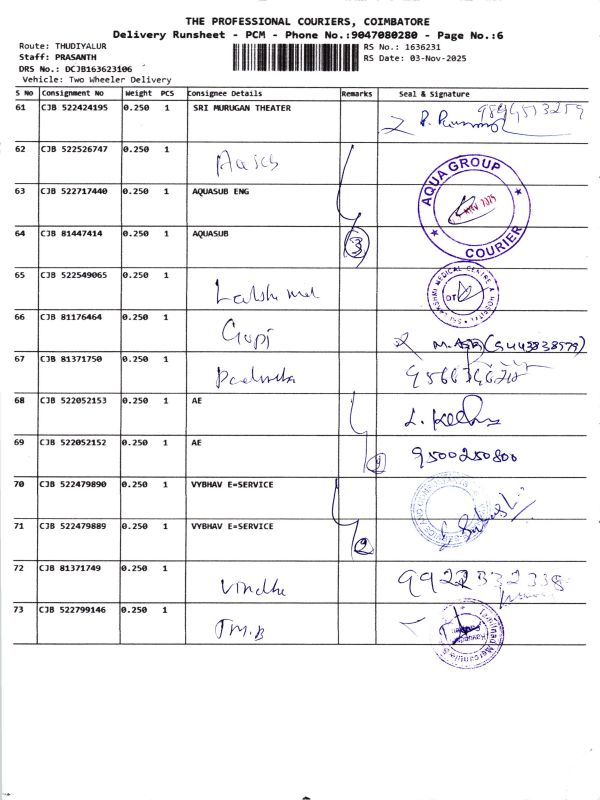 THE PROFESSIONAL COURIERS, COIMBATORE
Delivery Runsheet - PCM - Phone No.:9047080280 - Page No.:6
Route: THUDIYALUR
RS No.: 1636231
Staff: PRASANTH
RS Date: 03-Nov-2025
DRS No.: DCJB163623106
Vehicle: Two Wheeler Delivery
S No Consignment No Weight PCS Consignee Details Remarks Seal & Signature
61 CJB 522424195 0.250 1 SRI MURUGAN THEATER
62 CJB 522526747 0.250 1
63 CJB 522717440 0.250 1 AQUASUB ENG
AQUA GROUP
COURIER
64 CJB 81447414 0.250 1 AQUASUB 3
65 CJB 522549065 0.250 1
66 CJB 81176464 0.250 1 Gopi
67 CJB 81371750 0.250 1
68 CJB 522052153 0.250 1 AE
69 CJB 522052152 0.250 1 AE 9500250800
70 CJB 522479890 0.250 1 VYBHAV E=SERVICE
71 CJB 522479889 0.250 1 VYBHAV E=SERVICE 2
72 CJB 81371749 0.250 1
73 CJB 522799146 0.250 1 TM.B